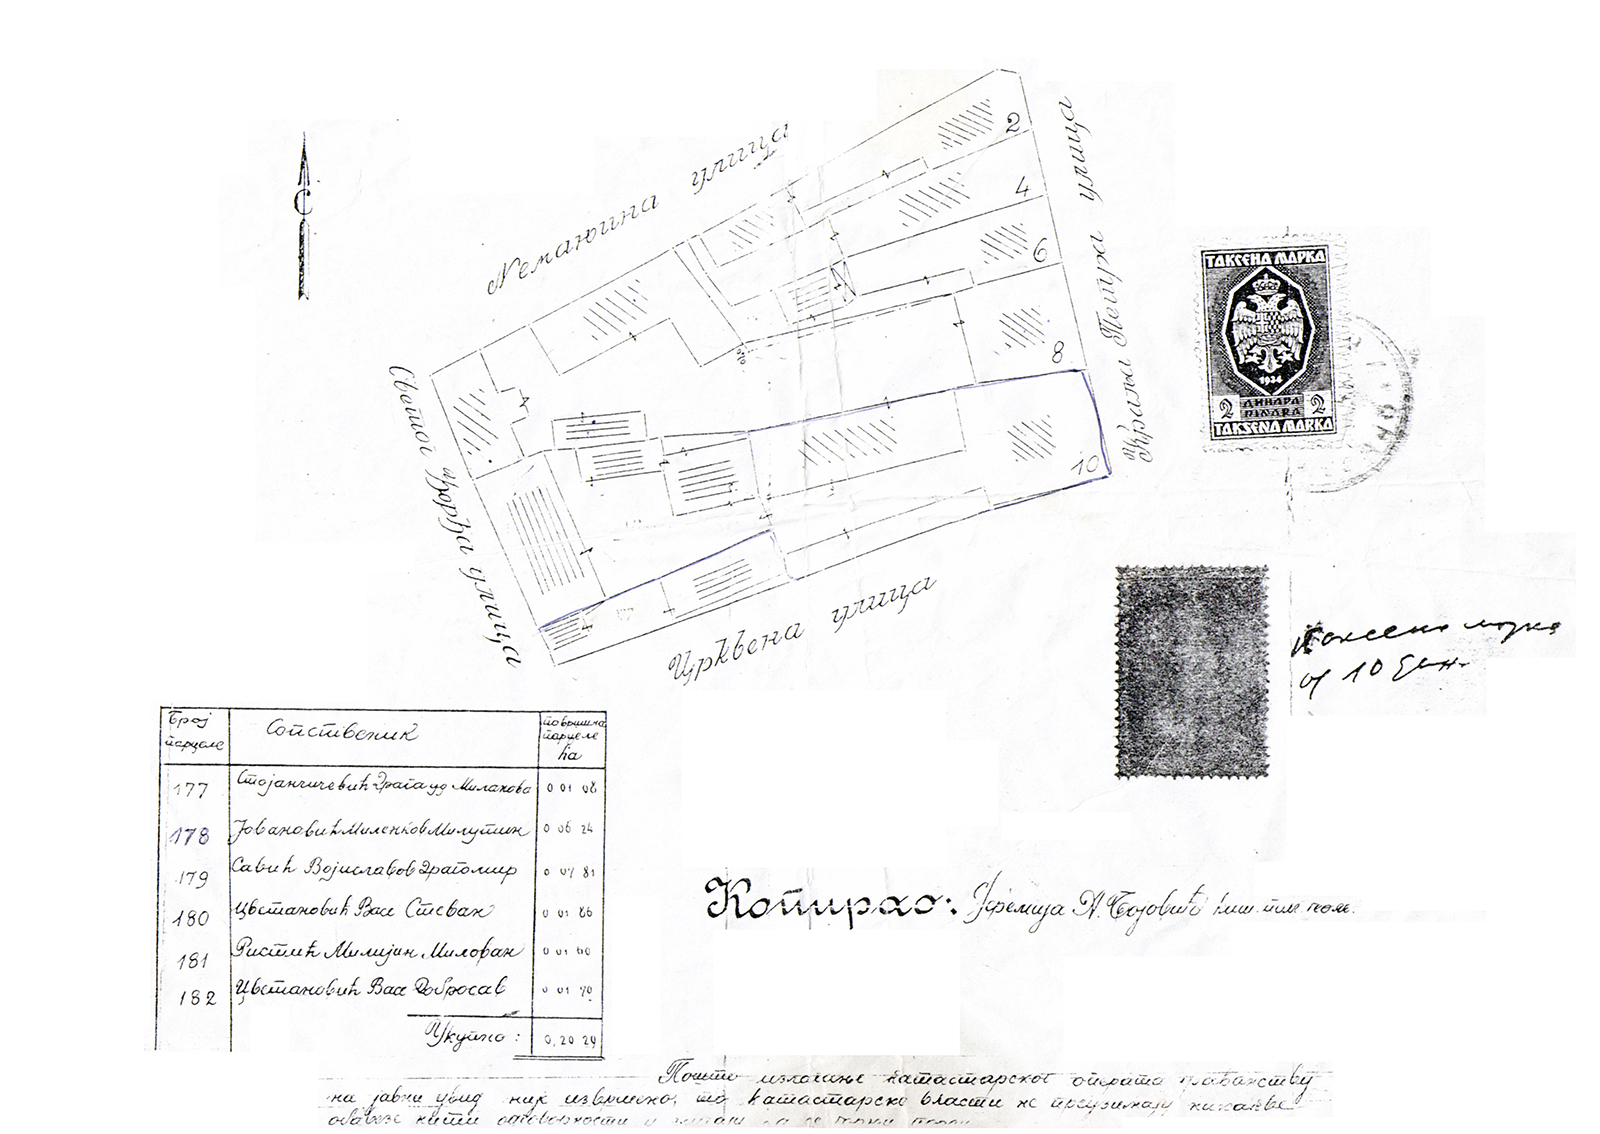 Немањина улица
2
4
6
8
10
С
Краља Петра улица
Светог Ђорђа улица
Црквена улица
ТАКСЕНА МАРКА
1934
2 ДИНАРА 2
DINARA
TAKSENA MARKA
Таксена марка
од 10 дин.
Број парцеле Сопственик површина парцеле ha
177 Стојанчичевић Драга уд Миланова 0 01 08
178 Јовановић Миленков Милутин 0 06 24
179 Савић Војиславов Драгомир 0 07 81
180 Цветановић Васе Стеван 0 01 86
181 Ристић Милијин Милован 0 01
182 Цветановић Васе Добросав 0 01 70
Укупно: 0,20 29
Копирао: Јеремија А. Бојовић
Пошто излагање катастарског операта грађанству
на јавни увид није извршено, то катастарске власти не преузимају никакве
обавезе нити одговорности